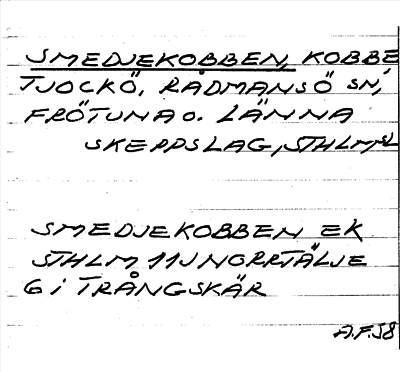 SMEDJEKOBBEN, KOBBE
TJOCKÖ, RÅDMANSÖ SN,
FRÖTUNA O. LÄNNA
SKEPPSLAG, STHLM,SL
SMEDJEKOBBEN EK
STHLM 11J NORRTÄLJE
G I TRÅNGSKÄR
A.F.58